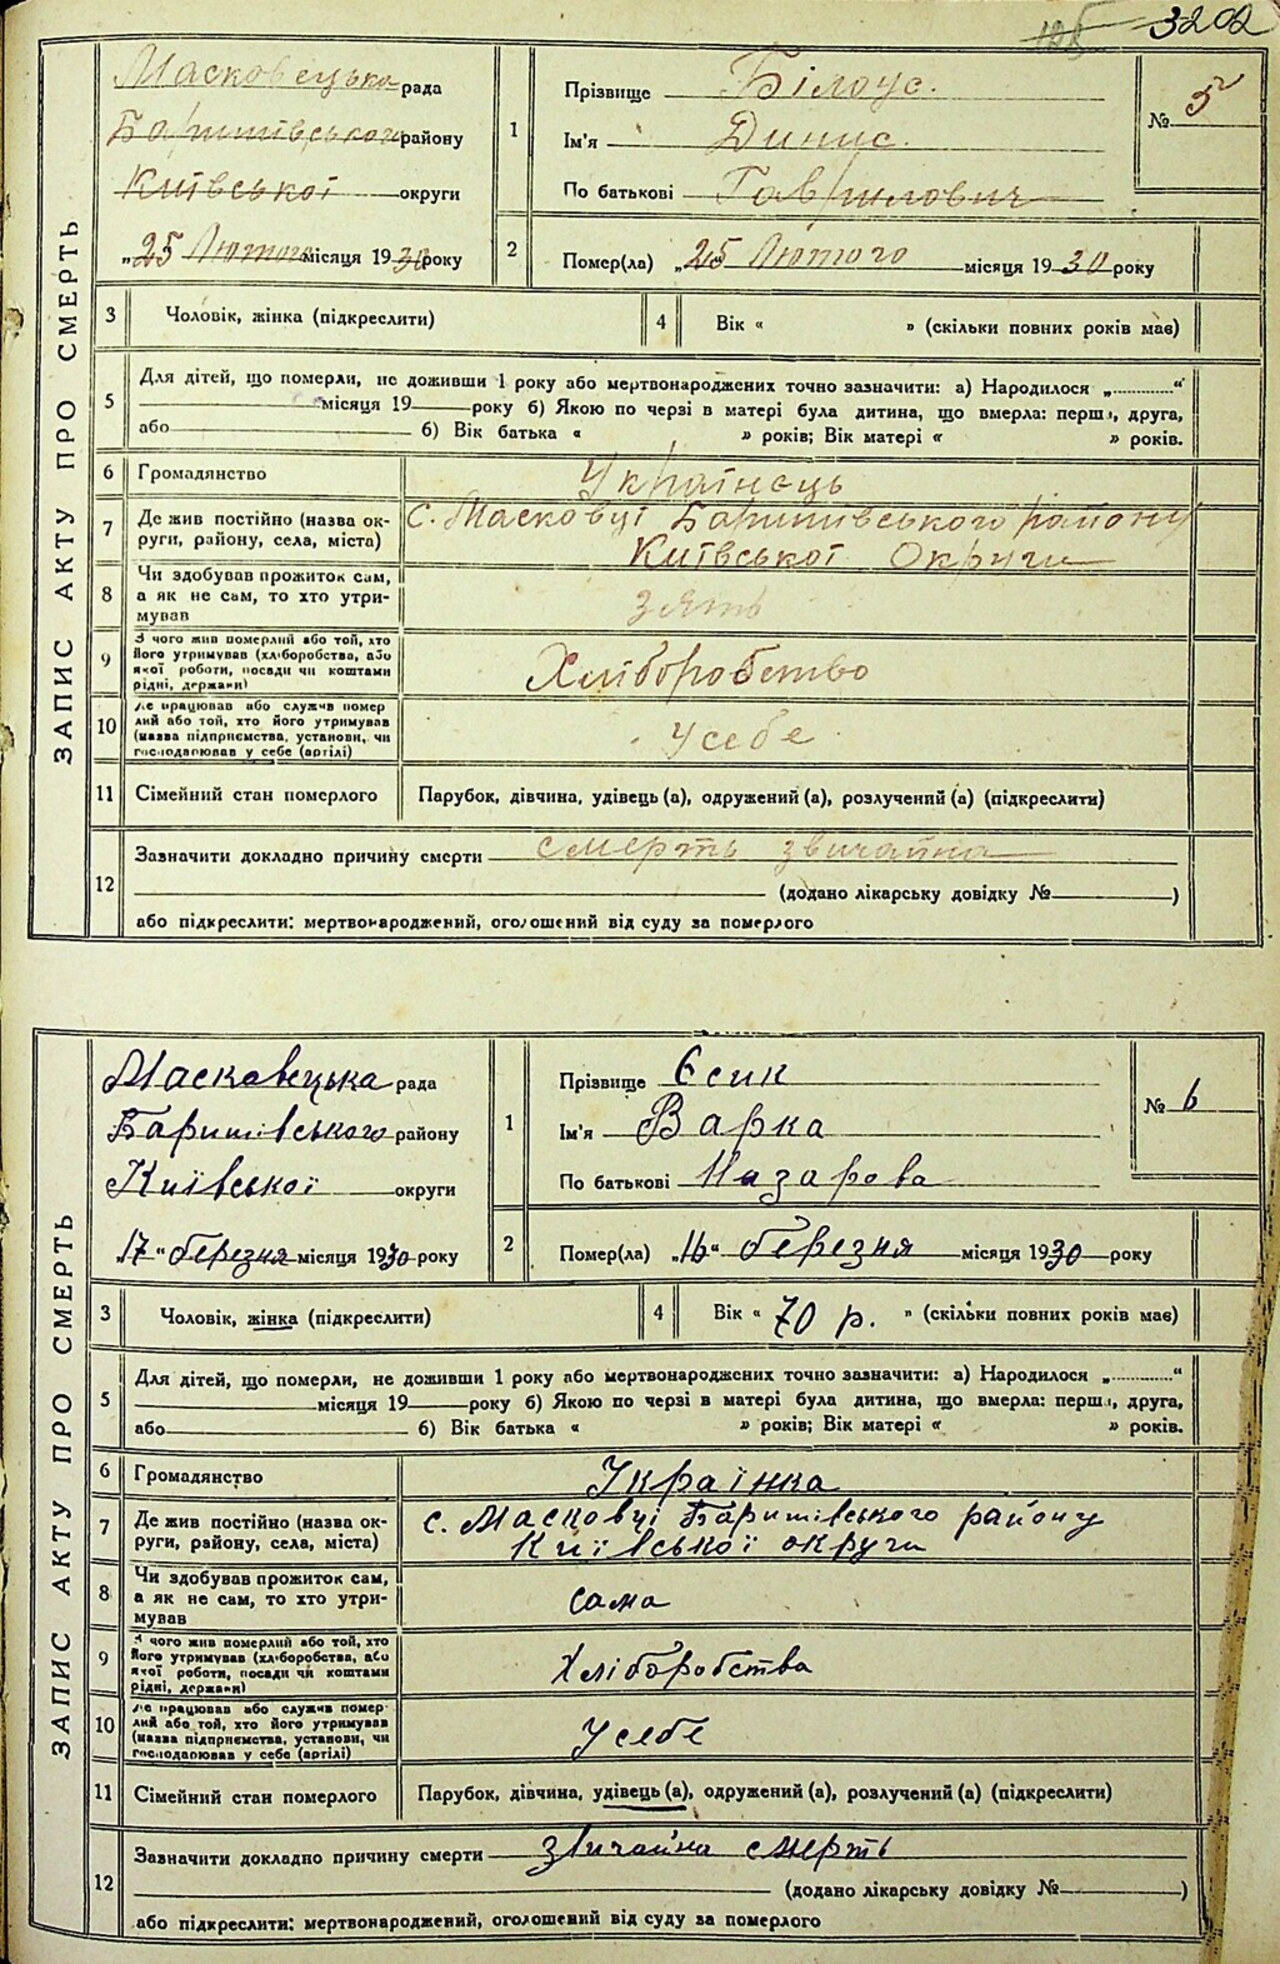 125 3202
ЗАПИС АКТУ ПРО СМЕРТЬ
Масковецька рада
Баришівського району
Київської округи
„25 Лютого місяця 1930 року
1
Прізвище Білоус.
Ім'я Динис.
По батькові Гаврилович
№ 5
2
Помер(ла) „25 Лютого місяця 1930 року
3 Чоловік, жінка (підкреслити)
4 Вік « » (скільки повних років має)
5
Для дітей, що померли, не доживши 1 року або мертвонароджених точно зазначити: а) Народилося „............“
місяця 19 року б) Якою по черзі в матері була дитина, що вмерла: перша, друга,
або б) Вік батька « » років; Вік матері « » років.
6 Громадянство Українєць
7 Де жив постійно (назва ок- с. Масковці Баришівського району
руги, району, села, міста) Київської Округи
8 Чи здобував прожиток сам,
а як не сам, то хто утри- зять
мував
9 З чого жив померлий або той, хто
його утримував (хліборобства, або Хліборобство
якої роботи, посади чи коштами
рідні, держави)
10 Де працював або служив помер
лий або той, хто його утримував
(назва підприємства, установи, чи у себе
господарював у себе (артілі)
11 Сімейний стан померлого Парубок, дівчина, удівець (а), одружений (а), розлучений (а) (підкреслити)
12
Зазначити докладно причину смерти смерть звичайна
(додано лікарську довідку № )
або підкреслити: мертвонароджений, оголошений від суду за померлого
ЗАПИС АКТУ ПРО СМЕРТЬ
Масковецька рада
Баришівського району
Київської округи
„17“ березня місяця 1930 року
1
Прізвище Єсик
Ім'я Варка
По батькові Назарова
№ 6
2
Помер(ла) „16“ березня місяця 1930 року
3 Чоловік, жінка (підкреслити)
4 Вік « 70 р. » (скільки повних років має)
5
Для дітей, що померли, не доживши 1 року або мертвонароджених точно зазначити: а) Народилося „............“
місяця 19 року б) Якою по черзі в матері була дитина, що вмерла: перша, друга,
або б) Вік батька « » років; Вік матері « » років.
6 Громадянство Українка
7 Де жив постійно (назва ок- с. Масковці Баришівського району
руги, району, села, міста) Київської округи
8 Чи здобував прожиток сам,
а як не сам, то хто утри- сама
мував
9 З чого жив померлий або той, хто
його утримував (хліборобства, або Хліборобства
якої роботи, посади чи коштами
рідні, держави)
10 Де працював або служив помер-
лий або той, хто його утримував
(назва підприємства, установи, чи у себе
господарював у себе (артілі)
11 Сімейний стан померлого Парубок, дівчина, удівець (а), одружений (а), розлучений (а) (підкреслити)
12
Зазначити докладно причину смерти звичайна смерть
(додано лікарську довідку № )
або підкреслити: мертвонароджений, оголошений від суду за померлого